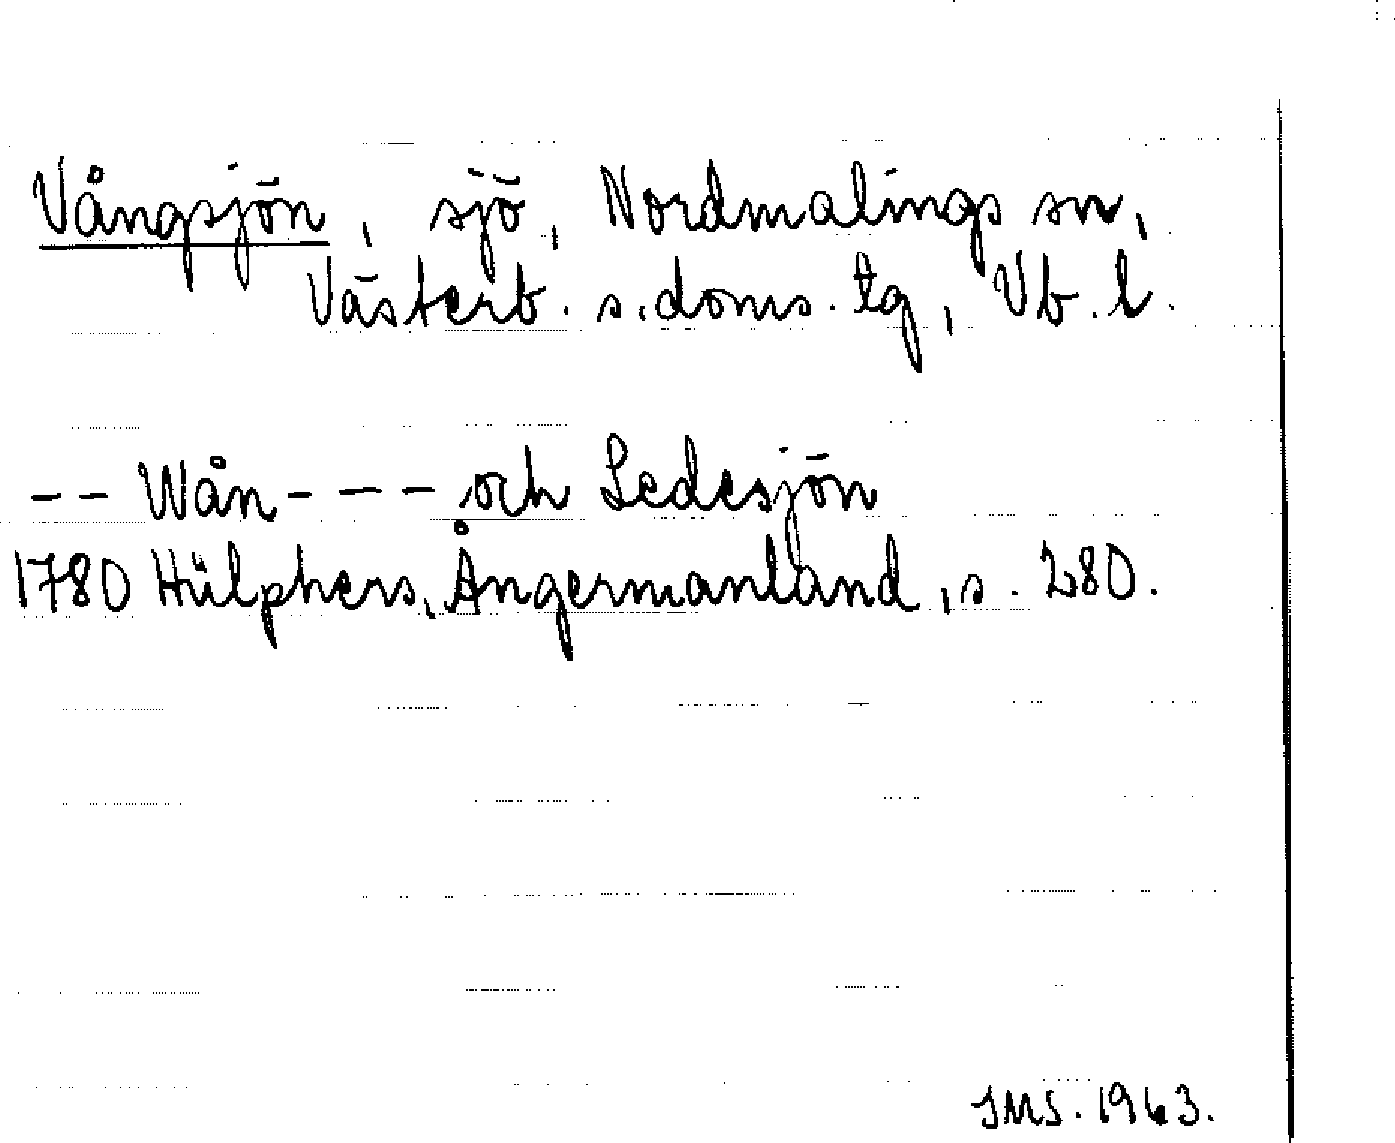 Vångsjön, sjö, Nordmalings sn,
Västerb. s. doms. tg, Vb. l.
-- Wån- --- och Ledesjön
1780 Hülphers, Ångermanland, s. 280.
JMS. 1963.